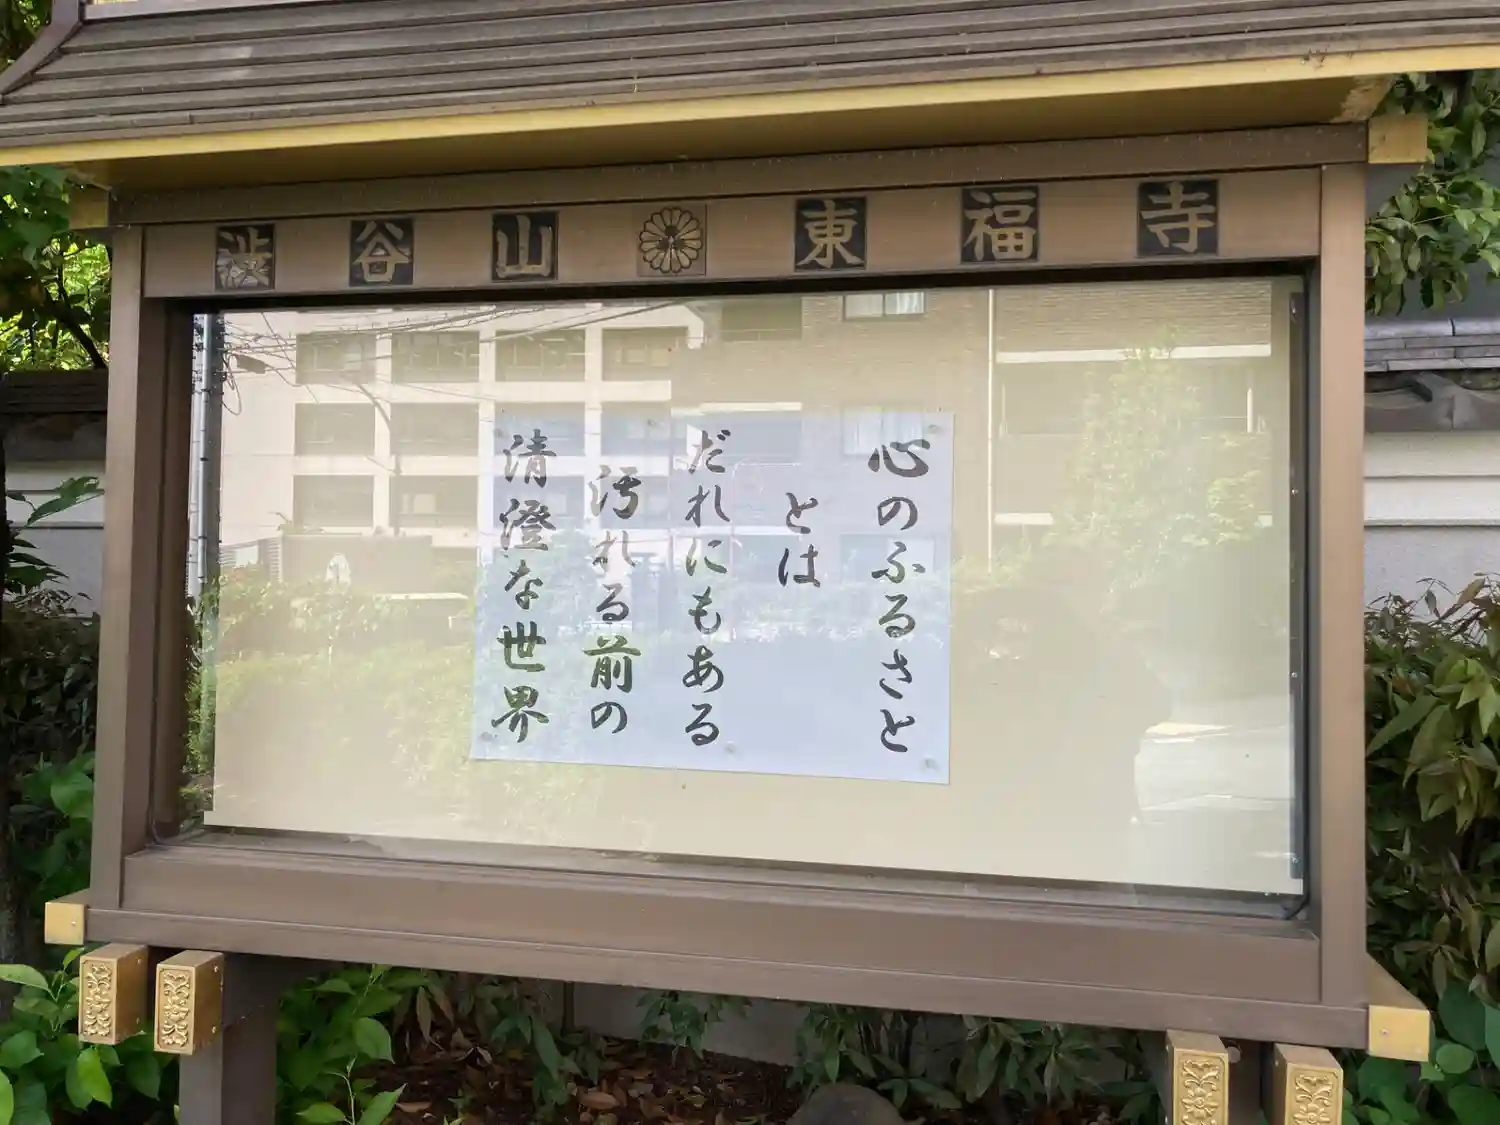 渋谷山 東福寺
心のふるさと
とは
だれにもある
汚れる前の
清澄な世界